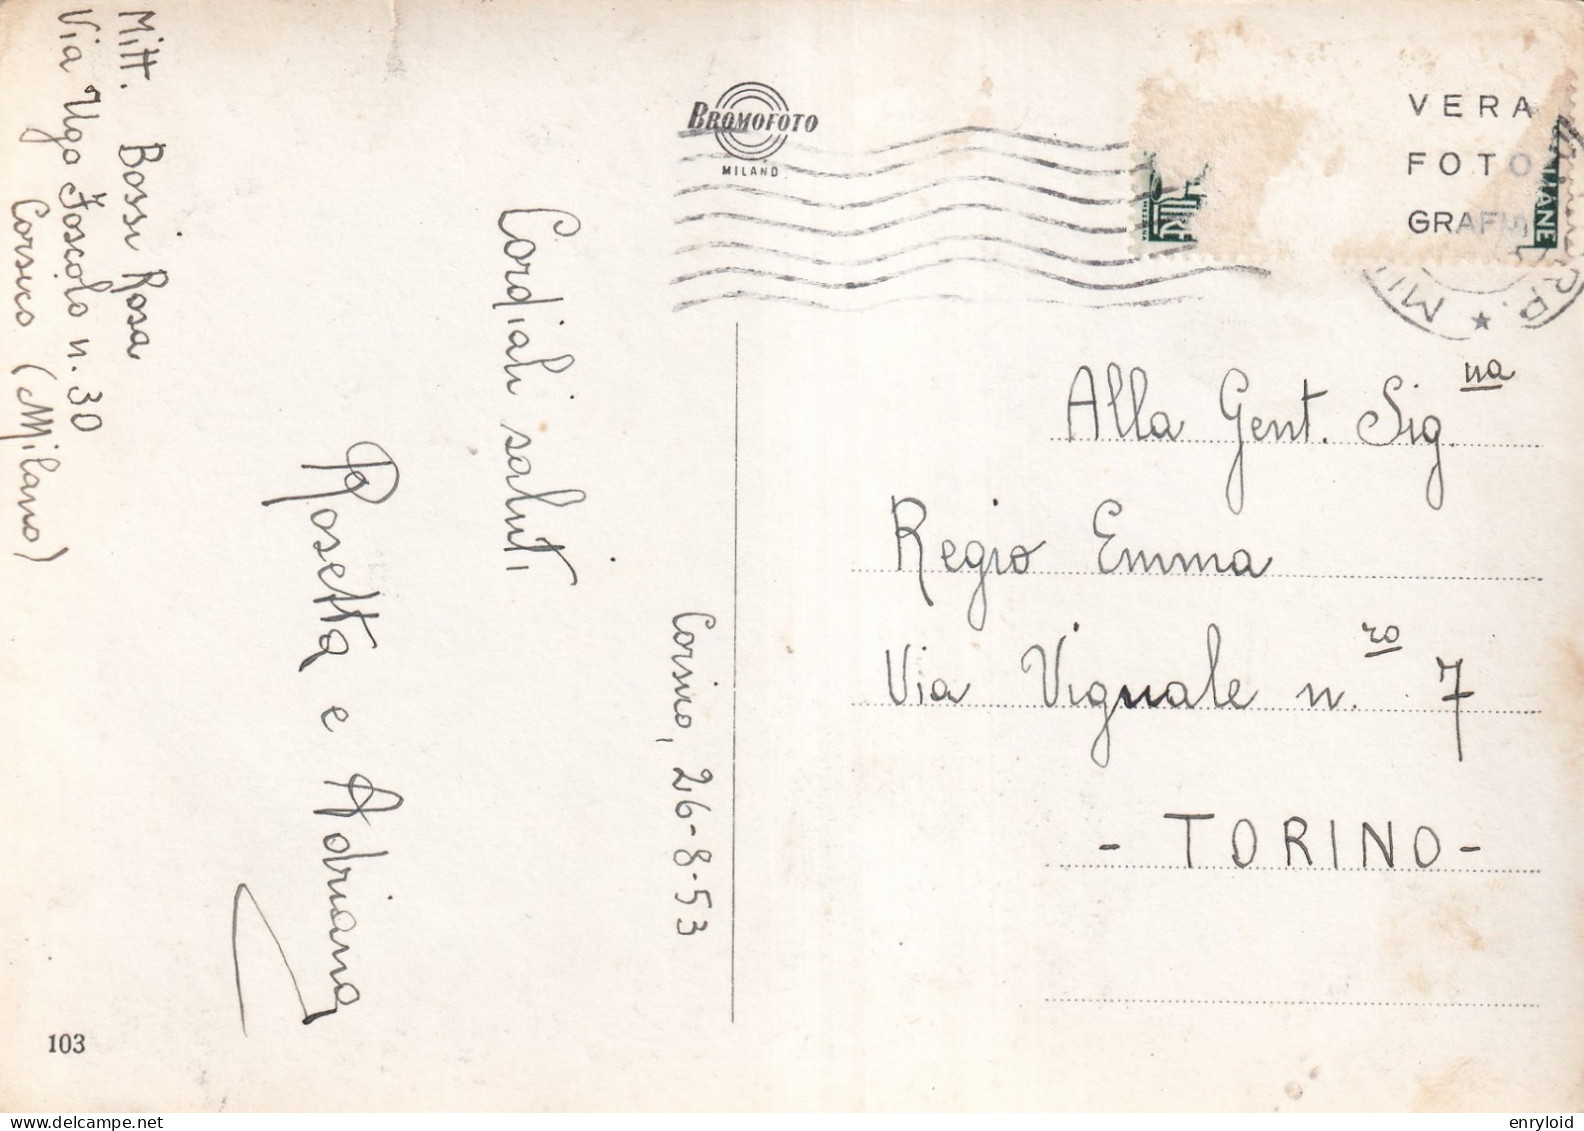 Mitt. Bossi Rosa
Via Ugo Foscolo n. 30
Corsico (Milano)
BROMOFOTO
MILANO
VERA
FOTO
GRAFIA
LIRE
Cordiali saluti
Rosetta e Adriana
Corsico, 26-8-53
Alla Gent. Sig.na
Regio Emma
Via Vignale n.ro 7
- TORINO -
103
enryloid @ delcampe.net